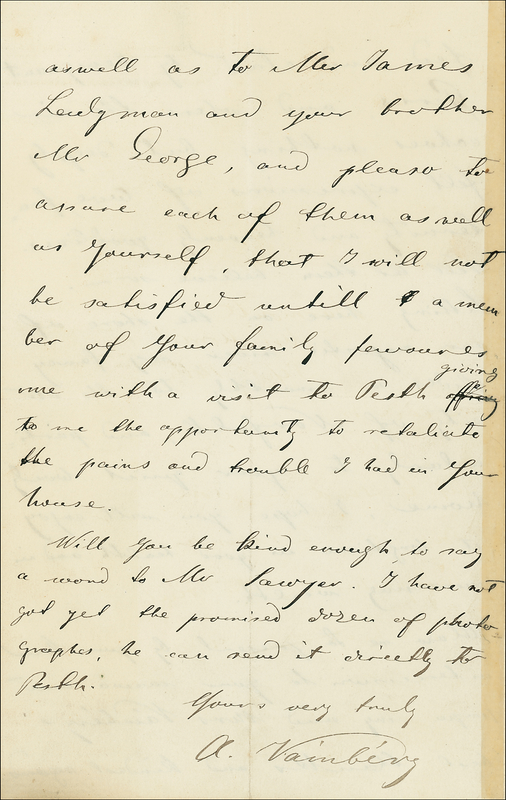 aswell as to Mr James
Ludgman and your brother
Mr George, and please to
assure each of them as well
as Yourself, that I will not
be satisfied untill a mem
ber of Your family favoures
giving
me with a visit to Pesth
to me the opportunity to retaliate
the pains and trouble I had in Your
house.
Will You be kind enough to say
a word to Mr Sawyer. I have not
got yet the promised dozen of photo-
graphes, he can send it directly to
Pesth.
Yours very truly
A. Vámbéry